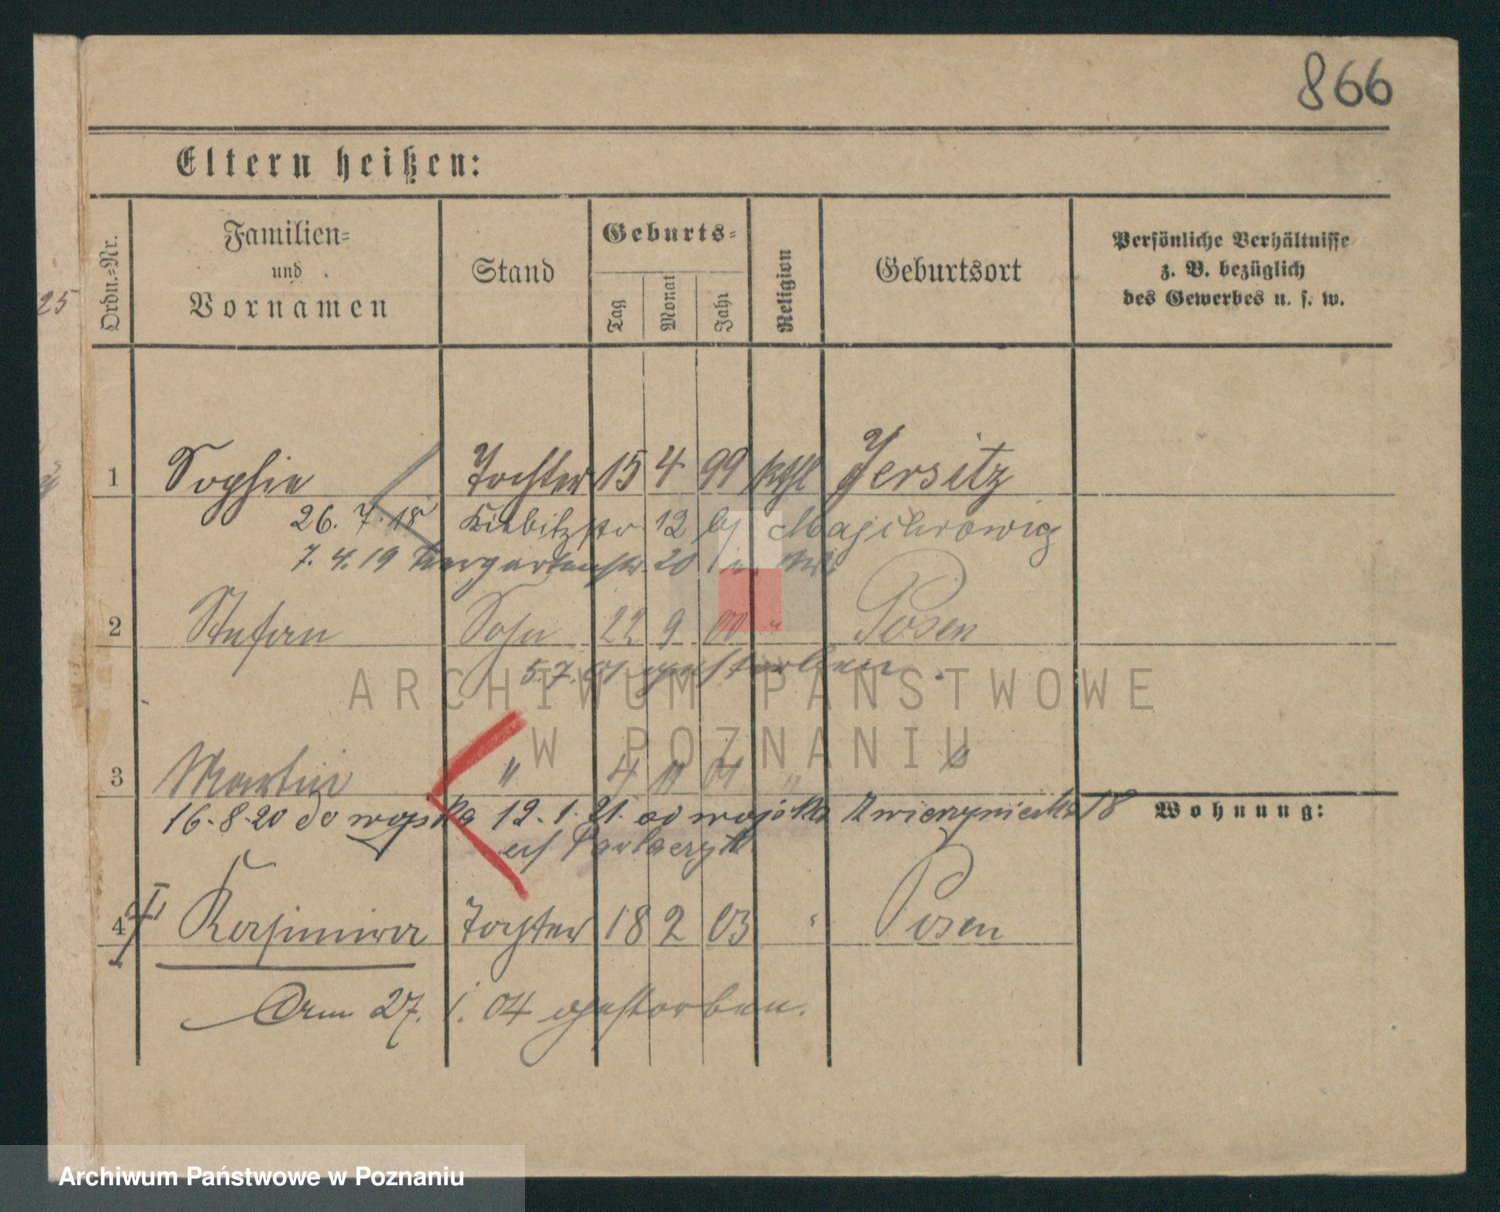 866
Eltern heißen:
25
Ordn.-Nr.
Familien-
und
Vornamen
Stand
Geburts-
Tag
Monat
Jahr
Religion
Geburtsort
Persönliche Verhältnisse
z. B. bezüglich
des Gewerbes u. s. w.
1 Sophie Tochter 15 4 99 kthl Jersitz
26. 7. 18 Kiebitzstr 12 bj Majchrowicz
7. 4. 19 Tiergartenstr. 20
2 Stefan Sohn 22 9 00 " Posen
5.7.01 gestorben.
ARCHIWUM PAŃSTWOWE
W POZNANIU
3 Martin " 4 11 01 " "
16-8-20 do wojska 12.1.21. od wojska Zwierzyniecka 18
Wohnung:
4 I Kasimira Tochter 18 2 03 " Posen
Am 27. 1. 04 gestorben.
Archiwum Państwowe w Poznaniu